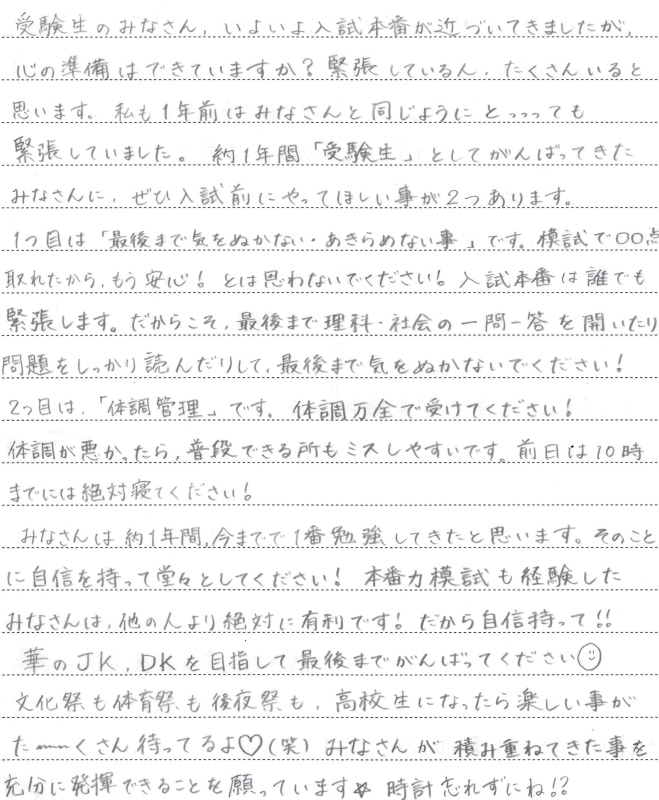 受験生のみなさん、いよいよ入試本番が近づいてきましたが、
心の準備はできていますか？緊張している人、たくさんいると
思います。私も1年前はみなさんと同じようにとっっっても
緊張していました。約1年間「受験生」としてがんばってきた
みなさんに、ぜひ入試前にやってほしい事が2つあります。
1つ目は「最後まで気をぬかない・あきらめない事」です。模試で〇〇点
取れたから、もう安心！とは思わないでください！入試本番は誰でも
緊張します。だからこそ、最後まで理科・社会の一問一答を開いたり
問題をしっかり読んだりして、最後まで気をぬかないでください！
2つ目は、「体調管理」です。体調万全で受けてください！
体調が悪かったら、普段できる所もミスしやすいです。前日は10時
までには絶対寝てください！
みなさんは約1年間、今までで1番勉強してきたと思います。そのこと
に自信を持って堂々としてください！本番力模試も経験した
みなさんは、他の人より絶対に有利です！だから自信持って!!
華のJK、DKを目指して最後までがんばってください☺
文化祭も体育祭も後夜祭も、高校生になったら楽しい事が
た〜〜くさん待ってるよ♡(笑)みなさんが積み重ねてきた事を
充分に発揮できることを願っています☆時計忘れずにね!?